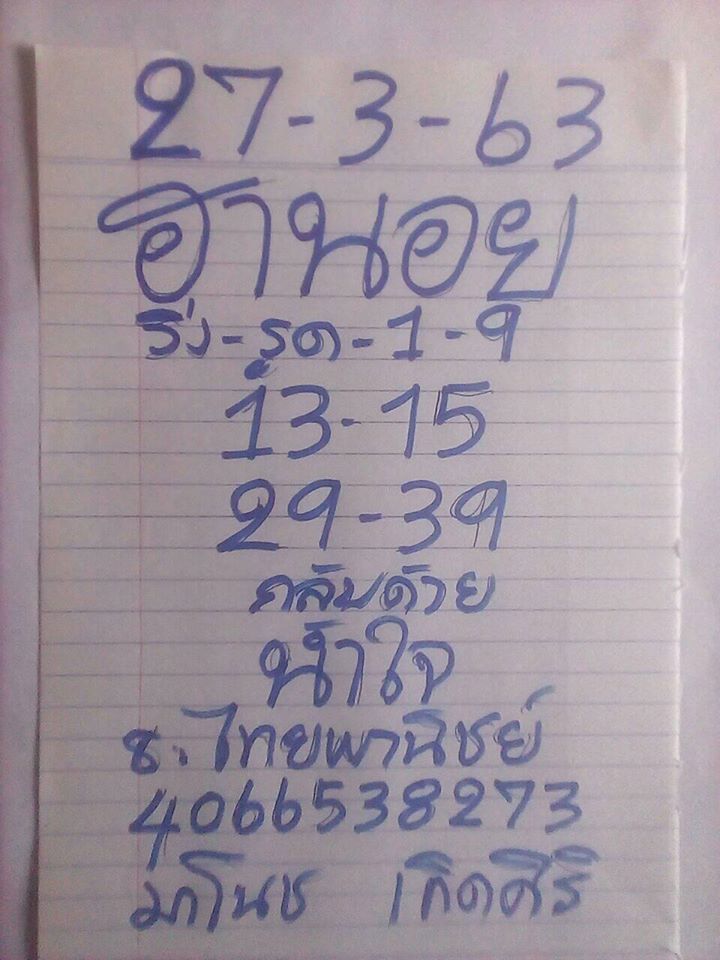 27-3-63
ฮานอย
วิ่ง-รูด-1-9
13-15
29-39
กลับด้วย
น้ำใจ
ธ.ไทยพานิชย์
4066538273
มาโนช เกิดศิริ